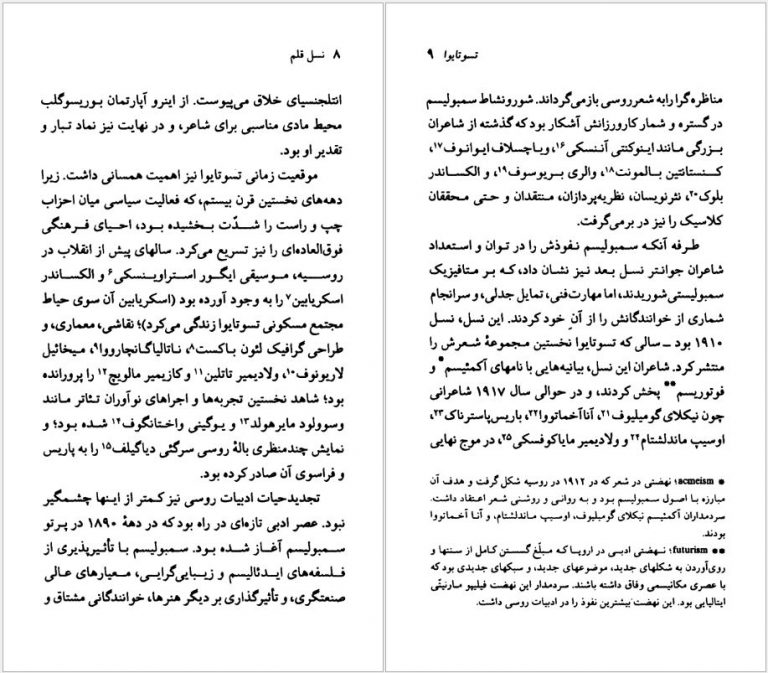 ۸ نسل قلم
انتلجنسیای خلاق می‌پیوست. از اینرو آپارتمان بوریسوگلب
محیط مادی مناسبی برای شاعر، و در نهایت نیز نماد تبار و
تقدیر او بود.
موقعیت زمانی تسوتایوا نیز اهمیت همسانی داشت. زیرا
دهه‌های نخستین قرن بیستم، که فعالیت سیاسی میان احزاب
چپ و راست را شدّت بخشیده بود، احیای فرهنگی
فوق‌العاده‌ای را نیز تسریع می‌کرد. سالهای پیش از انقلاب در
روسیه، موسیقی ایگور استراوینسکی۶ و الکساندر
اسکریابین۷ را به وجود آورده بود (اسکریابین آن سوی حیاط
مجتمع مسکونی تسوتایوا زندگی می‌کرد)؛ نقاشی، معماری، و
طراحی گرافیک لئون باکست۸، ناتالیاگانچارووا۹، میخائیل
لاریونوف۱۰، ولادیمیر تاتلین۱۱ و کازیمیر مالویچ۱۲ را پرورانده
بود؛ شاهد نخستین تجربه‌ها و اجراهای نوآوران تئاتر مانند
وسوولود مایرهولد۱۳ و یوگینی واختانگوف۱۴ شده بود؛ و
نمایش چندمنظری بالهٔ روسی سرگئی دیاگیلف۱۵ را به پاریس
و فراسوی آن صادر کرده بود.
تجدیدحیات ادبیات روسی نیز کمتر از اینها چشمگیر
نبود. عصر ادبی تازه‌ای در راه بود که در دههٔ ۱۸۹۰ در پرتو
سمبولیسم آغاز شده بود. سمبولیسم با تأثیرپذیری از
فلسفه‌های ایدئالیسم و زیبایی‌گرایی، معیارهای عالی
صنعتگری، و تأثیرگذاری بر دیگر هنرها، خوانندگانی مشتاق و
تسوتایوا ۹
مناظره‌گرا را به شعر روسی بازمی‌گرداند. شور و نشاط سمبولیسم
در گستره و شمار کارورزانش آشکار بود که گذشته از شاعران
بزرگی مانند اینوکنتی آننسکی۱۶، ویاچسلاف ایوانوف۱۷،
کنستانتین بالمونت۱۸، والری بریوسوف۱۹، و الکساندر
بلوک۲۰، نثرنویسان، نظریه‌پردازان، منتقدان و حتی محققان
کلاسیک را نیز در برمی‌گرفت.
طرفه آنکه سمبولیسم نفوذش را در توان و استعداد
شاعران جوانتر نسل بعد نیز نشان داد، که بر متافیزیک
سمبولیستی شوریدند، اما مهارت‌فنی، تمایل جدلی، و سرانجام
شماری از خوانندگانش را از آنِ خود کردند. این نسل، نسل
۱۹۱۰ بود ــ سالی که تسوتایوا نخستین مجموعهٔ شعرش را
منتشر کرد. شاعران این نسل، بیانیه‌هایی با نامهای آکمئیسم* و
فوتوریسم** پخش کردند، و در حوالی سال ۱۹۱۷ شاعرانی
چون نیکلای گومیلیوف۲۱، آنا آخماتووا۲۲، باریس پاسترناک۲۳،
اوسیپ ماندلشتام۲۴ و ولادیمیر مایاکوفسکی۲۵، در موج نهایی
* acmeism؛ نهضتی در شعر که در ۱۹۱۲ در روسیه شکل گرفت و هدف آن
مبارزه با اصول سمبولیسم بود و به روانی و روشنی شعر اعتقاد داشت.
سردمداران آکمئیسم نیکلای گومیلیوف، اوسیپ ماندلشتام، و آنا آخماتووا
بودند.
** futurism؛ نهضتی ادبی در اروپا که مبلّغ گسستن کامل از سنتها و
روی‌آوردن به شکلهای جدید، موضوعهای جدید، و سبکهای جدیدی بود که
با عصری مکانیسمی وفاق داشته باشند. سردمدار این نهضت فیلیپو مارنیتّی
ایتالیایی بود. این نهضت بیشترین نفوذ را در ادبیات روسی داشت.